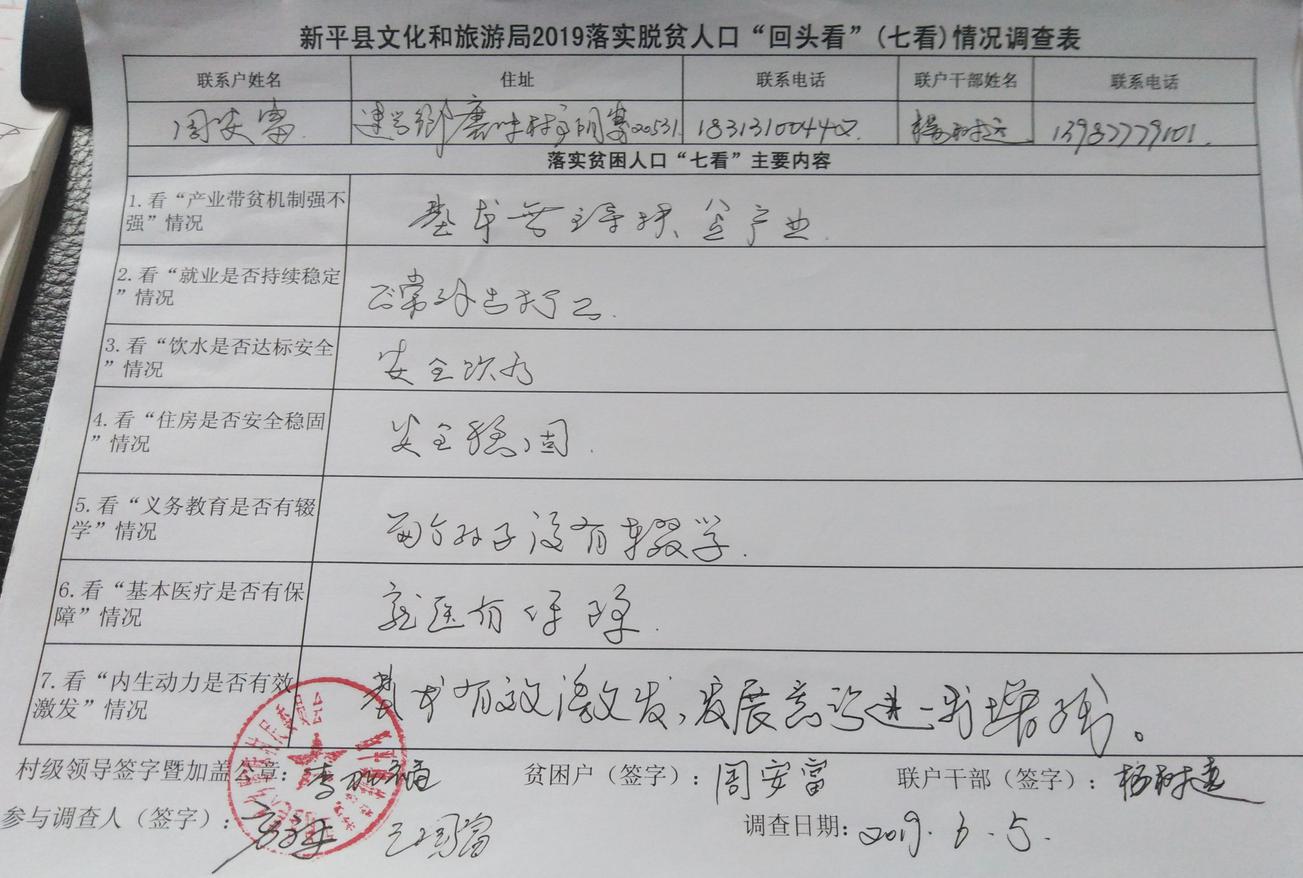 新平县文化和旅游局2019落实脱贫人口“回头看”(七看)情况调查表
联系户姓名 住址 联系电话 联户干部姓名 联系电话
周安富 建兴乡磨味村 18313100440 杨树远 13987779101
落实贫困人口“七看”主要内容
1.看“产业带贫机制强不
强”情况
基本有主导扶贫产业.
2.看“就业是否持续稳定
”情况
正常外出打工.
3.看“饮水是否达标安全
”情况
安全饮水
4.看“住房是否安全稳固
”情况
安全稳固.
5.看“义务教育是否有辍
学”情况
两个孙子没有辍学.
6.看“基本医疗是否有保
障”情况
就医有保障.
7.看“内生动力是否有效
激发”情况
基本有效激发、发展意识进一步增强。
村级领导签字暨加盖公章: 贫困户(签字): 周安富 联户干部(签字): 杨树远
参与调查人(签字): 调查日期: 2019.6.5.